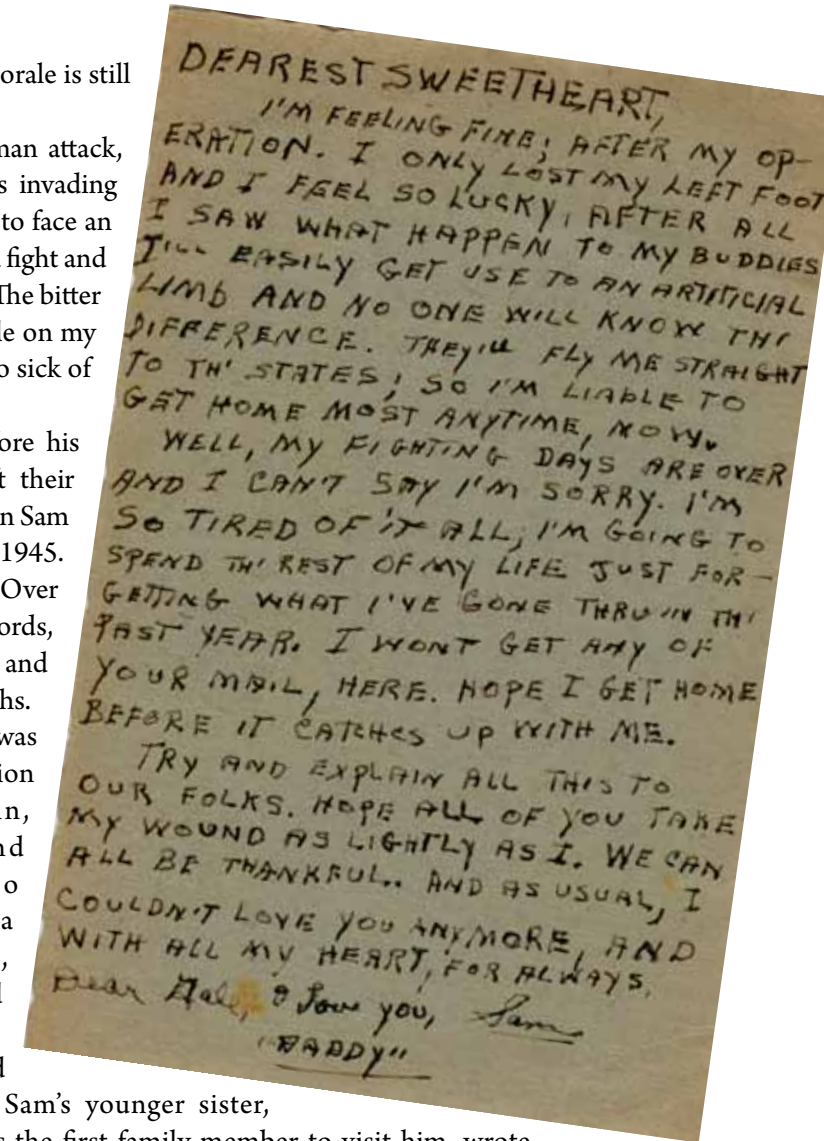 orale is still
man attack,
s invading
to face an
fight and
The bitter
le on my
o sick of
ore his
t their
n Sam
1945.
Over
ords,
and
hs.
was
ion
n,
nd
o
a
,
d
Sam's younger sister,
s the first family member to visit him, wrote
DEAREST SWEETHEART,
I'M FEELING FINE; AFTER MY OP-
ERATION. I ONLY LOST MY LEFT FOOT
AND I FEEL SO LUCKY, AFTER ALL
I SAW WHAT HAPPEN TO MY BUDDIES
I'LL EASILY GET USE TO AN ARTIFICIAL
LIMB AND NO ONE WILL KNOW TH'
DIFFERENCE. THEY'LL FLY ME STRAIGHT
TO TH' STATES; SO I'M LIABLE TO
GET HOME MOST ANYTIME, NOW.
WELL, MY FIGHTING DAYS ARE OVER
AND I CAN'T SAY I'M SORRY. I'M
SO TIRED OF IT ALL, I'M GOING TO
SPEND TH' REST OF MY LIFE JUST FOR-
GETTING WHAT I'VE GONE THRU IN TH'
PAST YEAR. I WONT GET ANY OF
YOUR MAIL, HERE. HOPE I GET HOME
BEFORE IT CATCHES UP WITH ME.
TRY AND EXPLAIN ALL THIS TO
OUR FOLKS. HOPE ALL OF YOU TAKE
MY WOUND AS LIGHTLY AS I. WE CAN
ALL BE THANKFUL.. AND AS USUAL, I
COULDN'T LOVE YOU ANYMORE, AND
WITH ALL MY HEART, FOR ALWAYS.
Dear Gale, I Love you, Sam
"DADDY"